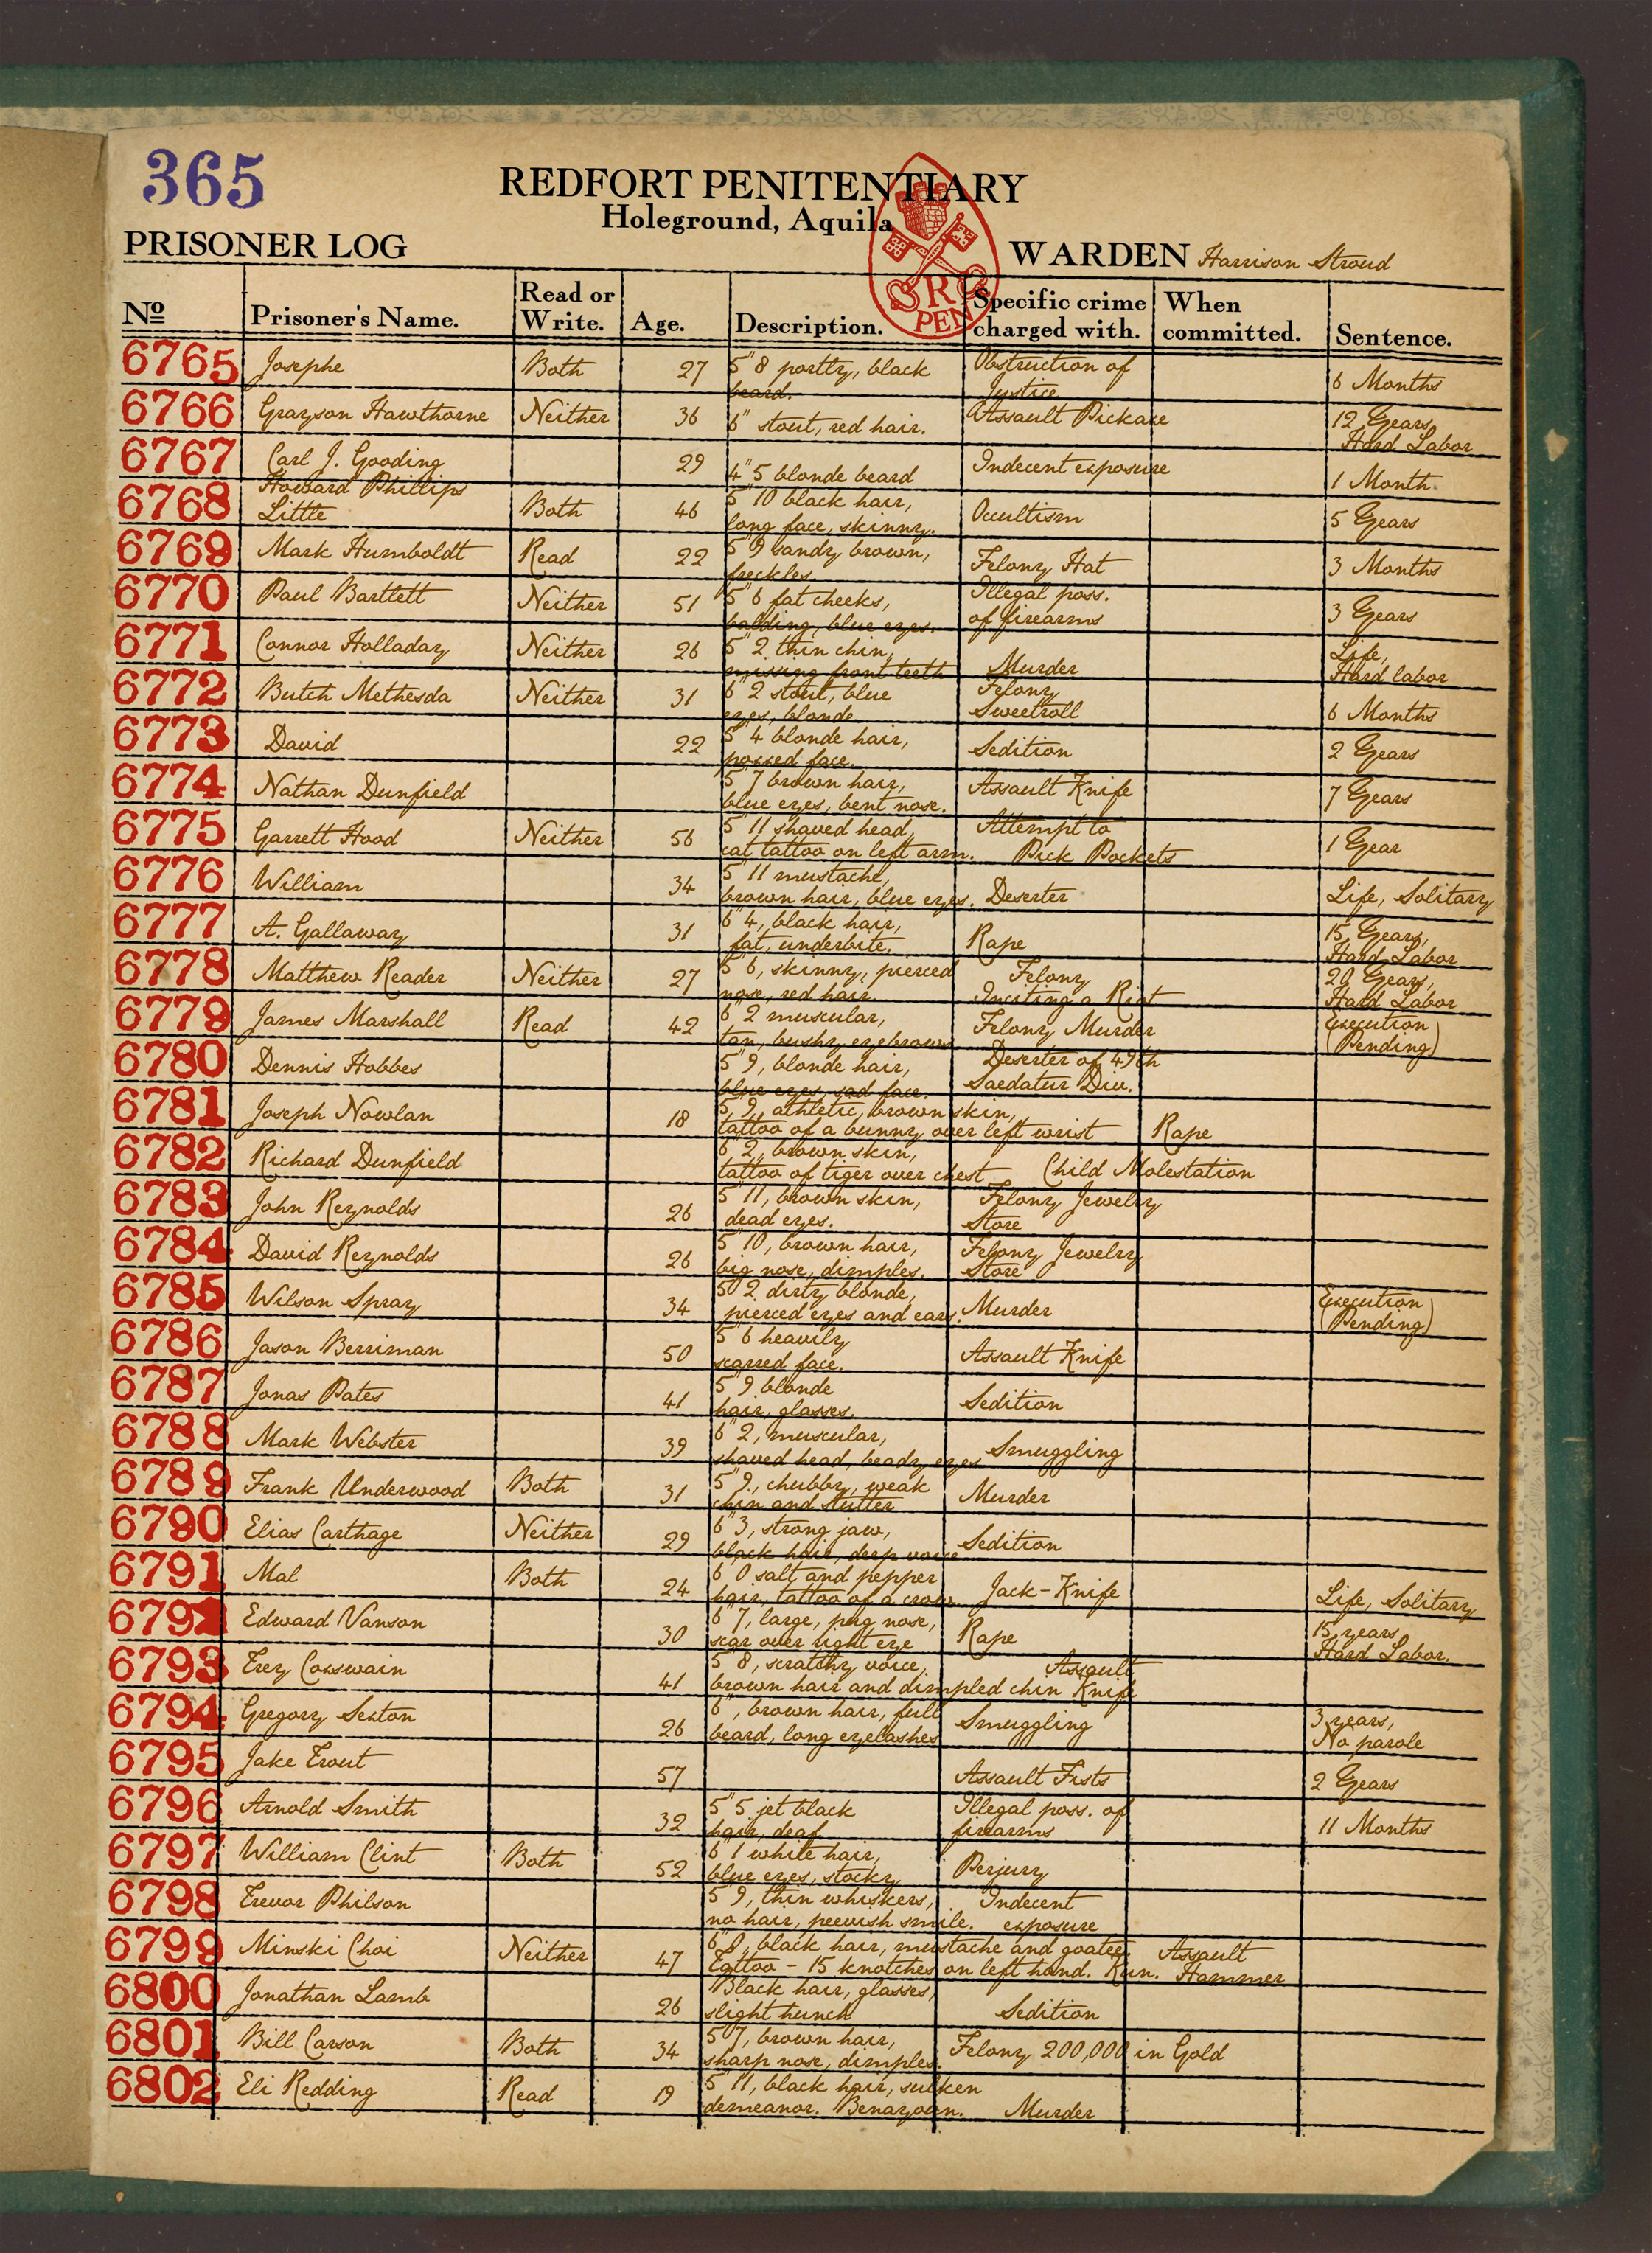 365
REDFORT PENITENTIARY
Holeground, Aquila
PRISONER LOG
WARDEN Harrison Stroud
R
PEN
No Prisoner's Name. Read or Write. Age. Description. Specific crime charged with. When committed. Sentence.
6765 Josephe Both 27 5"8 portly, black beard. Obstruction of Justice 6 Months
6766 Grayson Hawthorne Neither 36 6" stout, red hair. Assault Pickaxe 12 Years, Hard Labor
6767 Carl J. Gooding 29 4"5 blonde beard Indecent exposure 1 Month
6768 Howard Phillips Little Both 46 5"10 black hair, long face, skinny. Occultism 5 Years
6769 Mark Humboldt Read 22 5"9 sandy brown, freckles. Felony Hat 3 Months
6770 Paul Bartlett Neither 51 5"6 fat cheeks, balding, blue eyes. Illegal poss. of firearms 3 Years
6771 Connor Holladay Neither 26 5"2 thin chin, missing front teeth Murder Life, Hard labor
6772 Butch Methesda Neither 31 6"2 stout, blue eyes, blonde Felony Sweetroll 6 Months
6773 David 22 5"4 blonde hair, poxxed face. Sedition 2 Years
6774 Nathan Dunfield 5"7 brown hair, blue eyes, bent nose. Assault Knife 7 Years
6775 Garrett Hood Neither 56 5"11 shaved head, cat tattoo on left arm. Attempt to Pick Pockets 1 Year
6776 William 34 5"11 mustache, brown hair, blue eyes. Deserter Life, Solitary
6777 A. Gallaway 31 6"4, black hair, fat, underbite. Rape 15 Years, Hard Labor
6778 Matthew Reader Neither 27 5"6, skinny, pierced nose, red hair. Felony Inciting a Riot 20 Years, Hard Labor
6779 James Marshall Read 42 6"2 muscular, tan, bushy eyebrows Felony Murder Execution (Pending)
6780 Dennis Hobbes 5"9, blonde hair, blue eyes, sad face. Deserter of 49th Saedatur Div.
6781 Joseph Nowlan 18 5,9, athletic, brown skin, tattoo of a bunny over left wrist Rape
6782 Richard Dunfield 6"2, brown skin, tattoo of tiger over chest Child Molestation
6783 John Reynolds 26 5"11, brown skin, dead eyes. Felony Jewelry Store
6784 David Reynolds 26 5"10, brown hair, big nose, dimples. Felony Jewelry Store
6785 Wilson Spray 34 5"2 dirty blonde, pierced eyes and ears. Murder Execution (Pending)
6786 Jason Berriman 50 5"6 heavily scarred face. Assault Knife
6787 Jonas Pates 41 5"9 blonde hair, glasses. Sedition
6788 Mark Webster 39 6"2, muscular, shaved head, beady eyes Smuggling
6789 Frank Underwood Both 31 5"9, chubby, weak chin and stutter Murder
6790 Elias Carthage Neither 29 6"3, strong jaw, black hair, deep voice Sedition
6791 Mal Both 24 6"0 salt and pepper hair, tattoo of a crow. Jack-Knife Life, Solitary
6792 Edward Vanson 30 6"7, large, pug nose, scar over right eye Rape 15 years Hard Labor.
6793 Trey Coxswain 41 5"8, scratchy voice, brown hair and dimpled chin Assault Knife
6794 Gregory Sexton 26 6", brown hair, full beard, long eyelashes Smuggling 3 years, No parole
6795 Jake Trout 57 Assault Fists 2 Years
6796 Arnold Smith 32 5"5 jet black hair, deaf Illegal poss. of firearms 11 Months
6797 William Clint Both 52 6"1 white hair, blue eyes, stocky Perjury
6798 Trevor Philson 5"9, thin whiskers, no hair, peevish smile. Indecent exposure
6799 Minski Choi Neither 47 6"0, black hair, mustache and goatee. Tattoo - 15 knotches on left hand. Run. Assault Hammer
6800 Jonathan Lamb 26 Black hair, glasses, slight hunch Sedition
6801 Bill Carson Both 34 5"7, brown hair, sharp nose, dimples. Felony 200,000 in Gold
6802 Eli Redding Read 19 5"11, black hair, sulken demeanor. Benazoan. Murder